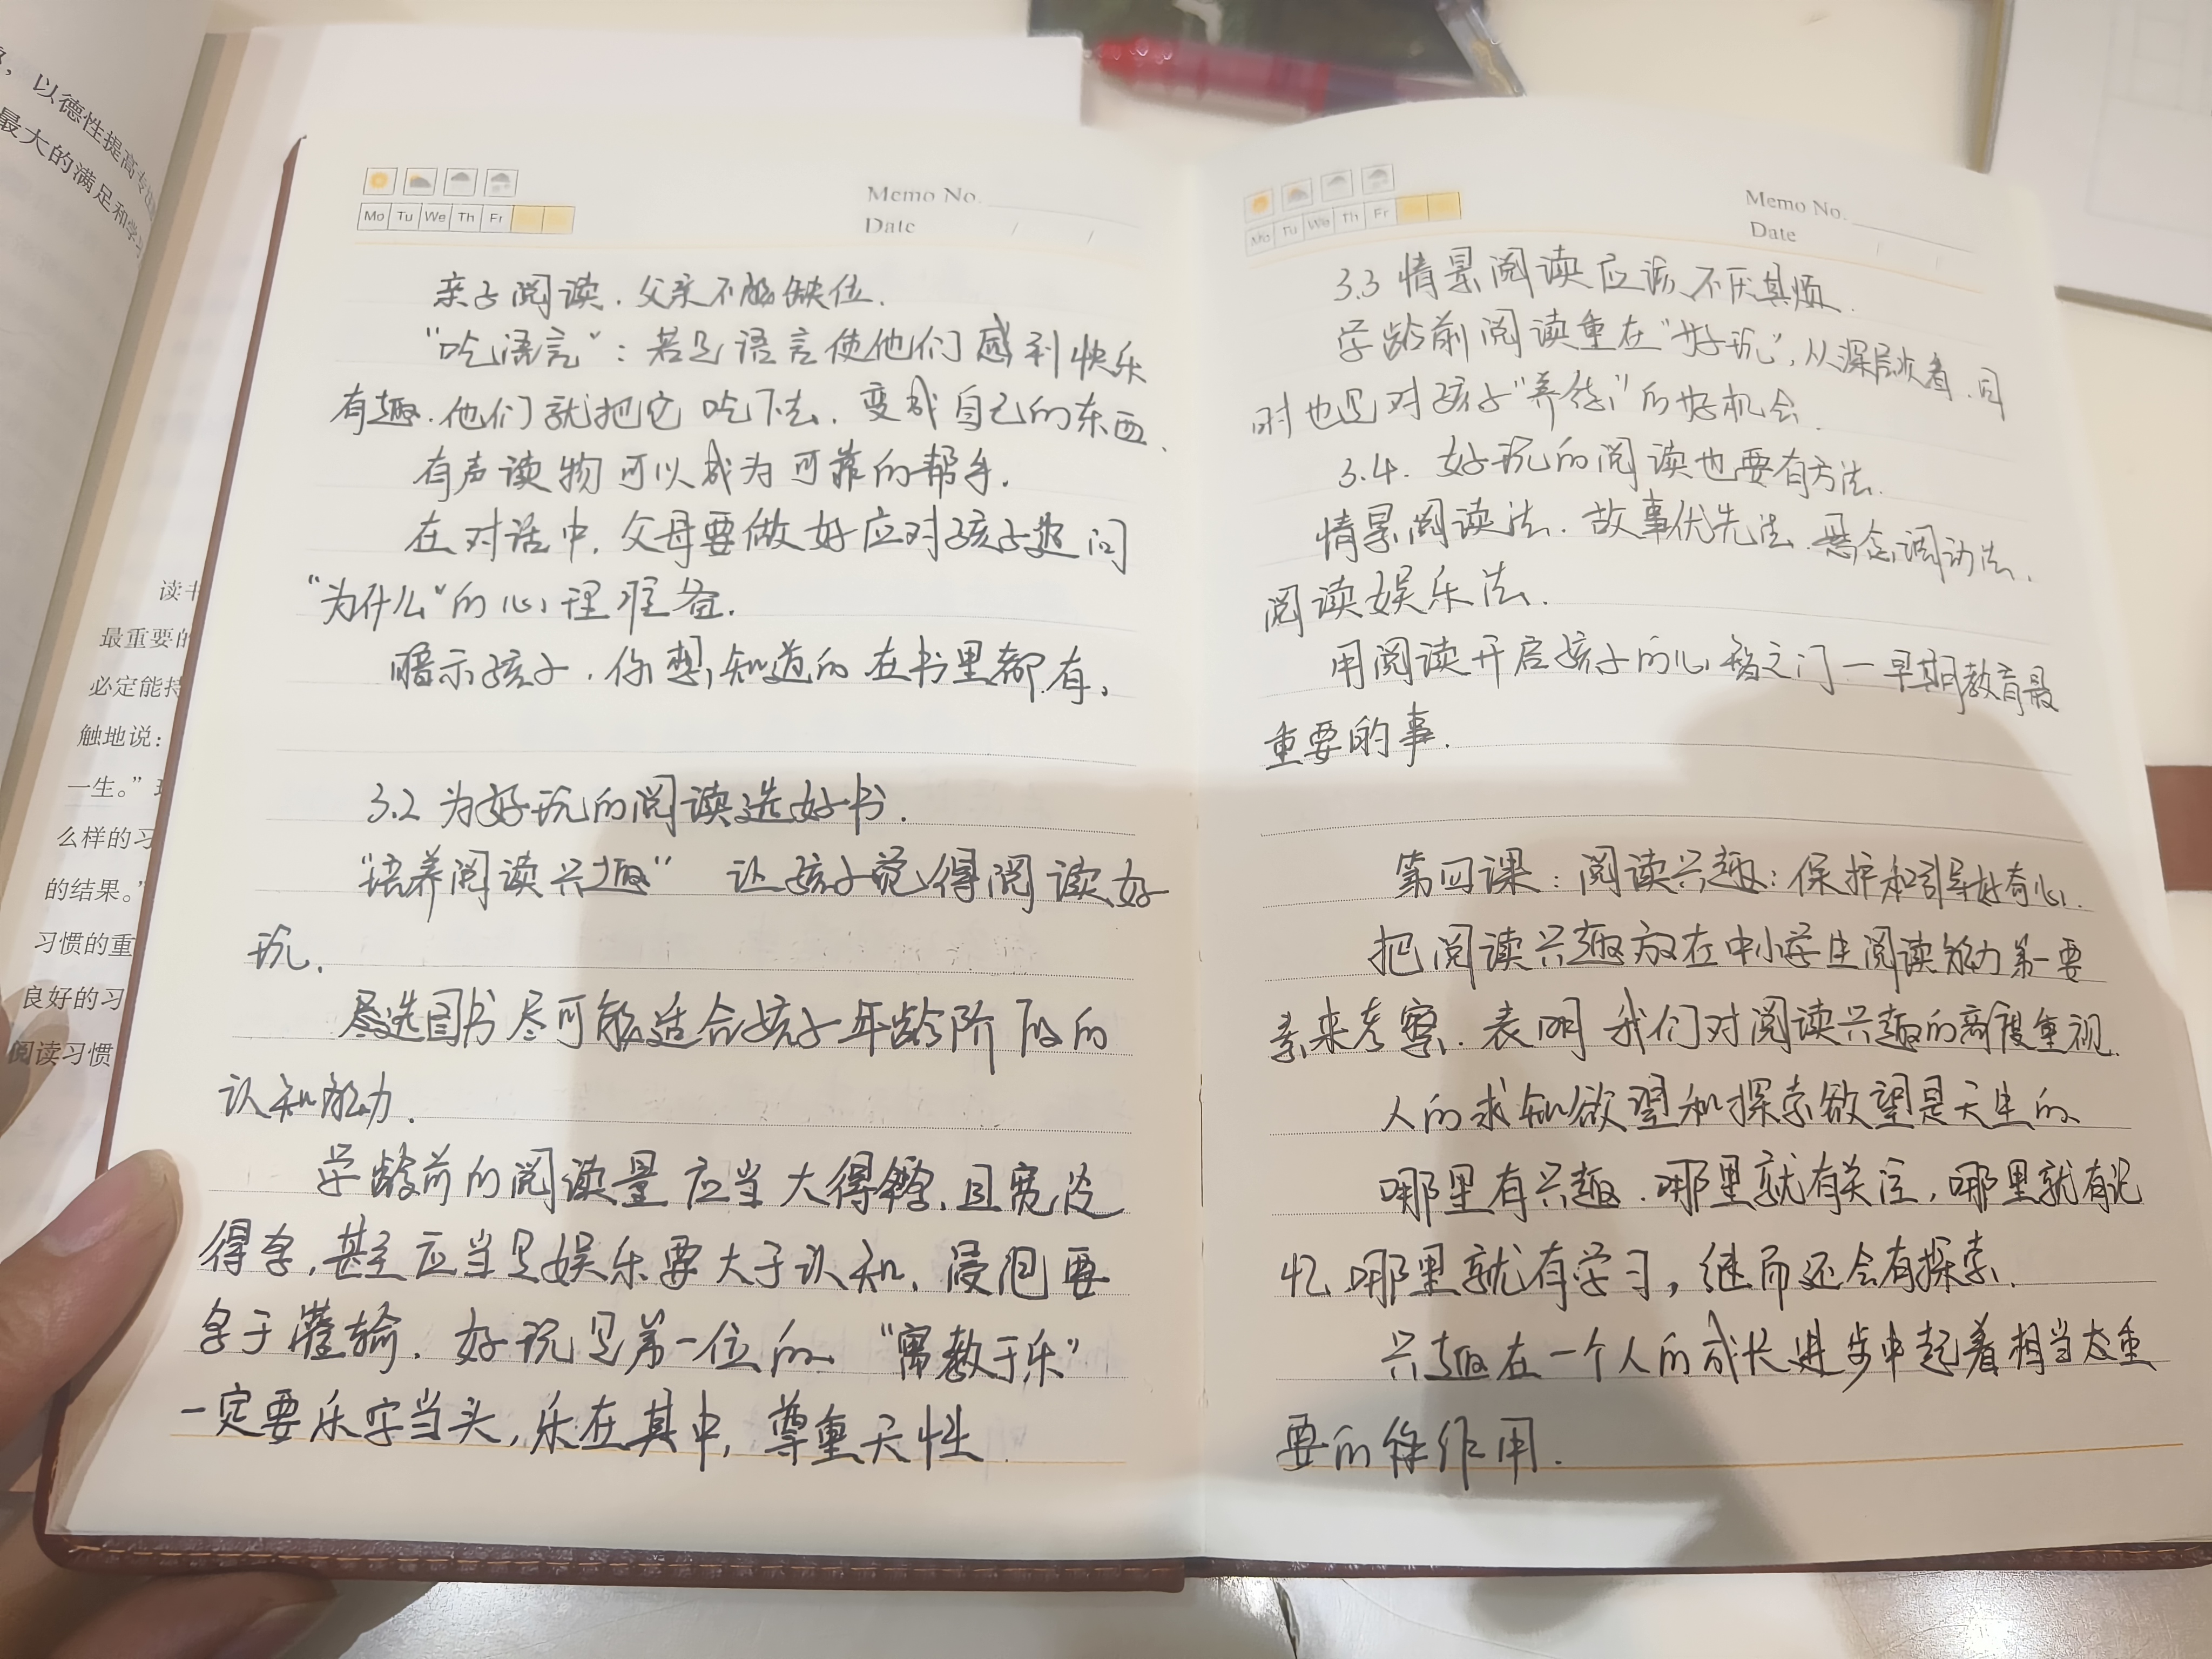 以德性提高专注
最大的满足和学习
读书
最重要的
必定能持
触地说：
一生。”
么样的习
的结果。”
习惯的重
良好的习
阅读习惯
Mo Tu We Th Fr
Memo No.
Date / /
亲子阅读.父亲不能缺位.
“吃语言”：若是语言使他们感到快乐
有趣.他们就把它吃下去.变成自己的东西.
有声读物可以成为可靠的帮手.
在对话中,父母要做好应对孩子追问
“为什么”的心理准备.
暗示孩子.你想知道的在书里都有.
3.2 为好玩的阅读选好书.
“培养阅读兴趣” 让孩子觉得阅读好
玩.
尽选图书尽可能适合孩子年龄阶段的
认知能力.
学龄前的阅读量应当大得多.且宽泛
得多,甚至应当是娱乐要大于认知.浸泡要
多于灌输.好玩是第一位的.“寓教于乐”
一定要乐字当头,乐在其中,尊重天性.
Mo Tu We Th Fr
Memo No.
Date / /
3.3 情景阅读应该不厌其烦.
学龄前阅读重在“好玩”,从深层次看.同
时也是对孩子“养德”的好机会.
3.4. 好玩的阅读也要有方法.
情景阅读法.故事优先法.悬念调动法.
阅读娱乐法.
用阅读开启孩子的心智之门一早期教育最
重要的事.
第四课：阅读兴趣：保护和引导好奇心.
把阅读兴趣放在中小学生阅读能力第一要
素来考察.表明我们对阅读兴趣的高度重视.
人的求知欲望和探索欲望是天生的
哪里有兴趣.哪里就有关注,哪里就有记
忆.哪里就有学习,继而还会有探索.
兴趣在一个人的成长进步中起着相当重
要的作用.